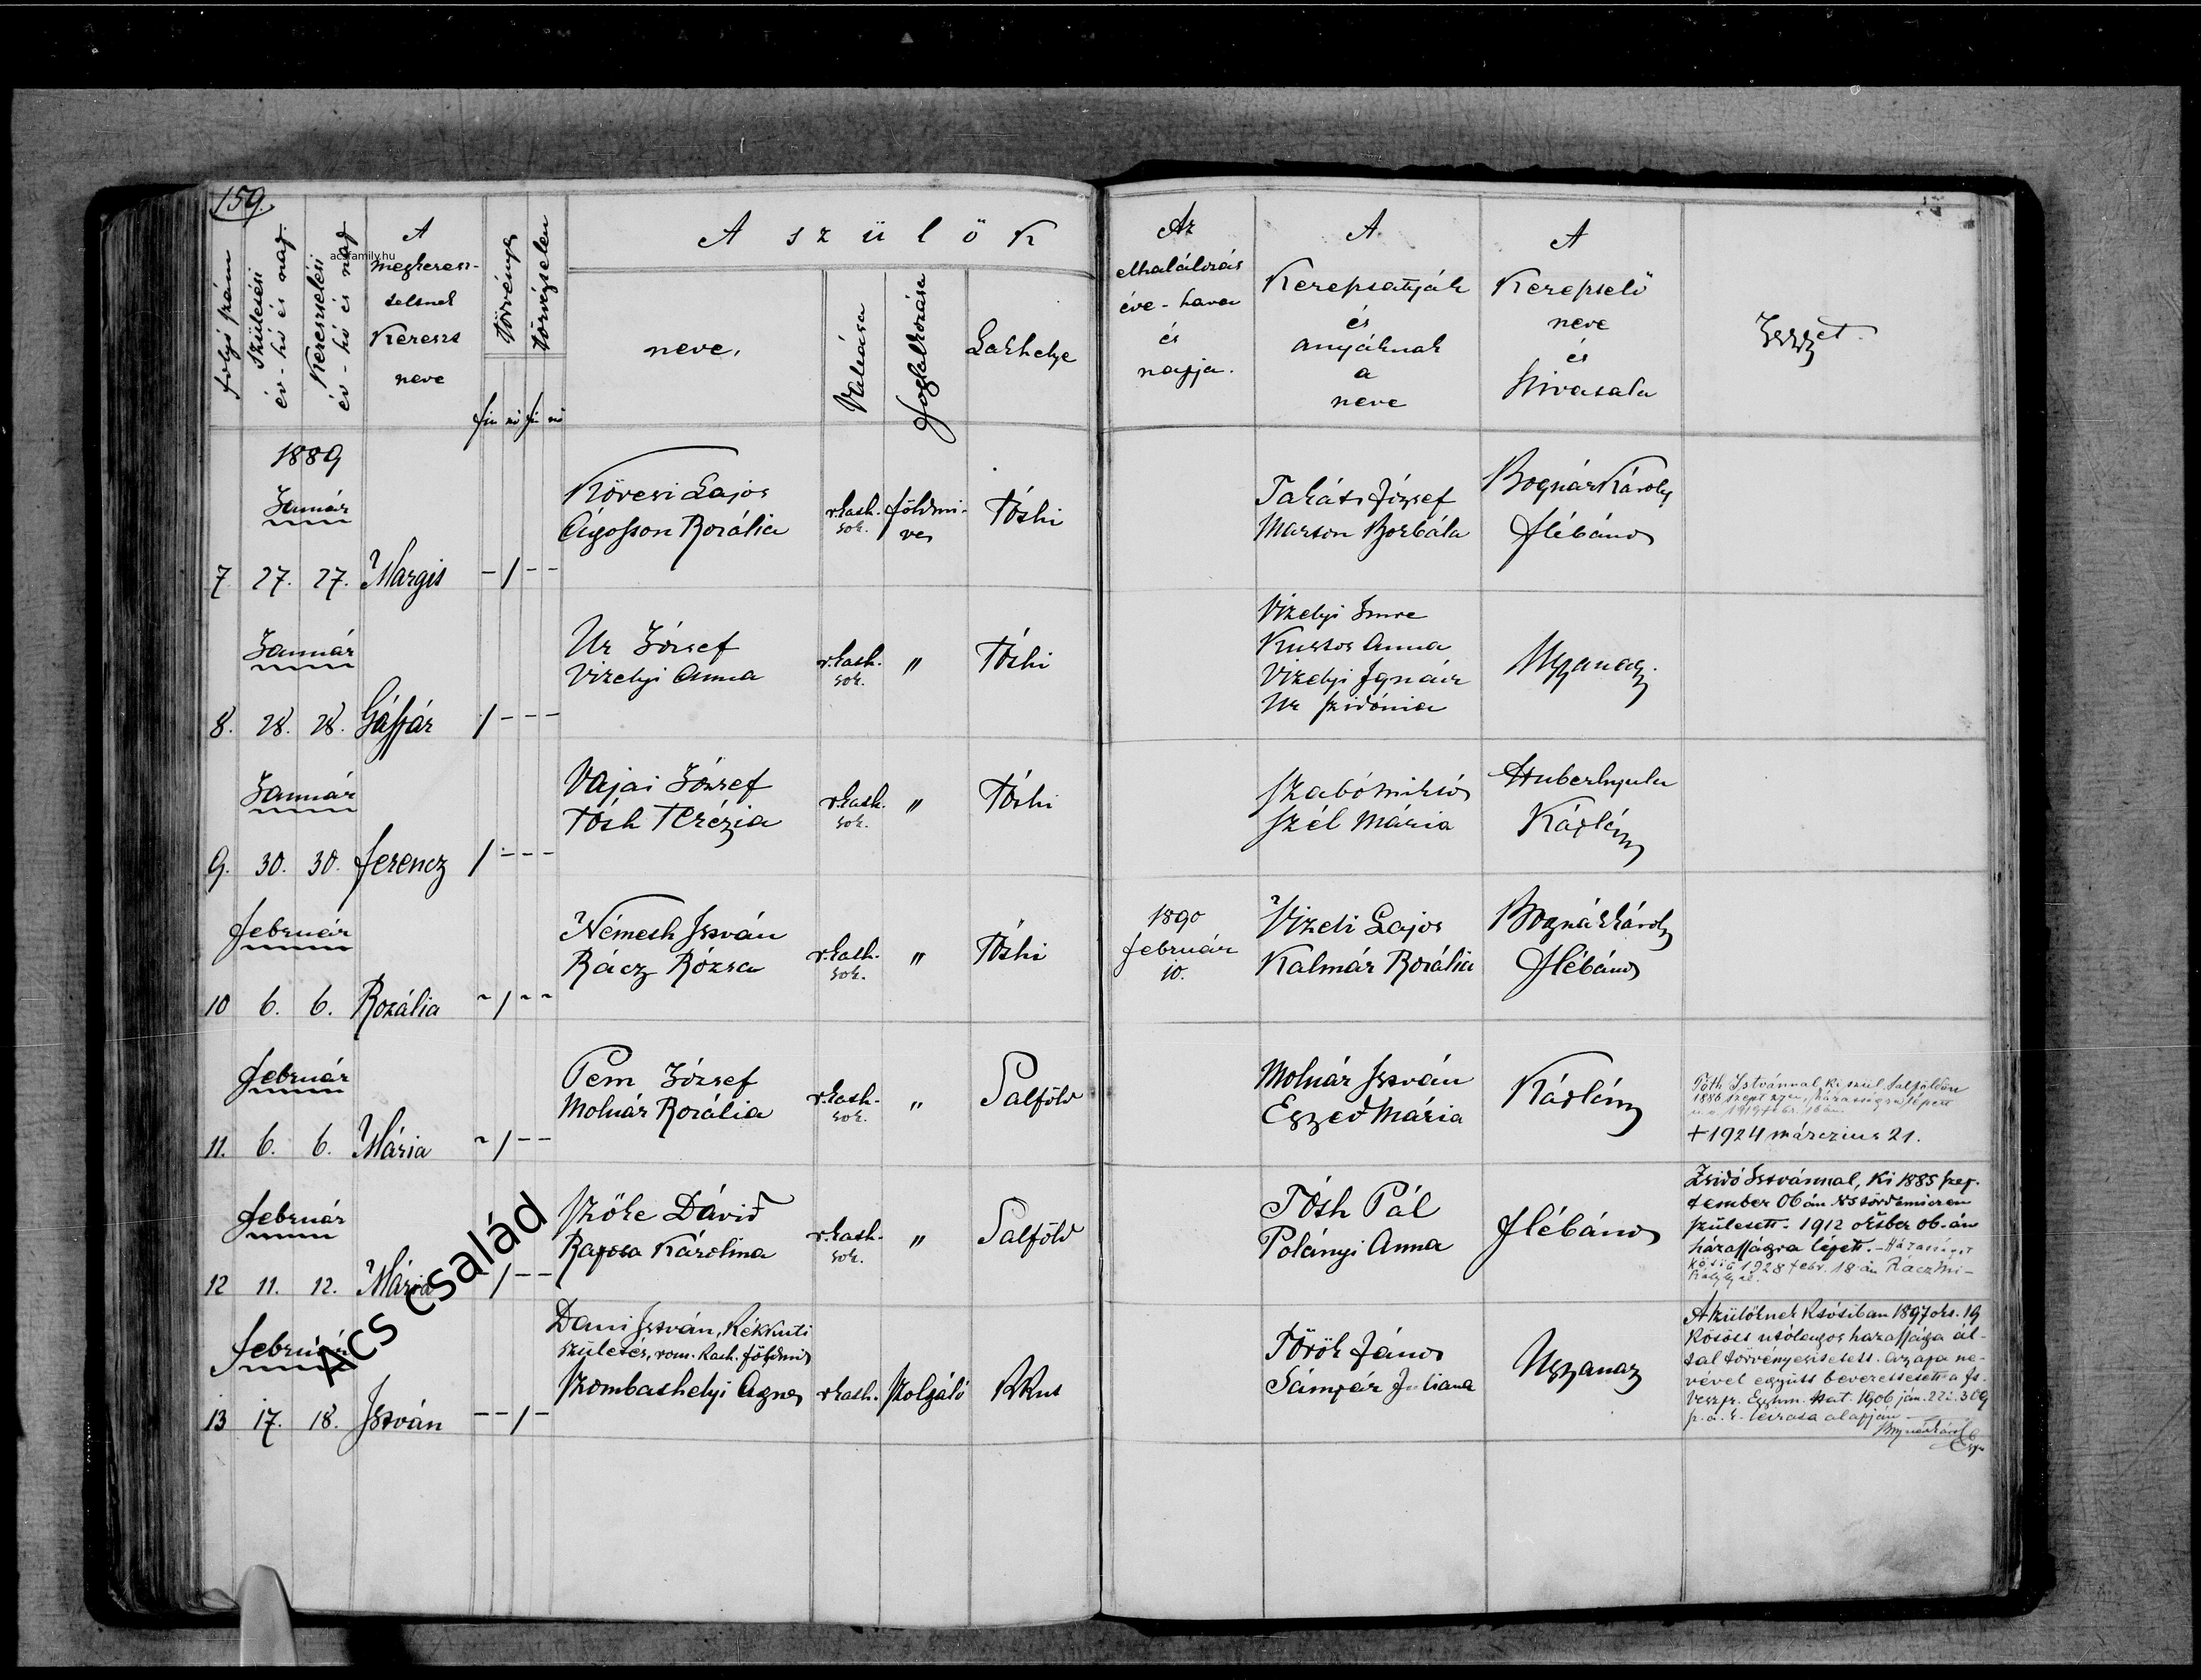 159.
folyó szám
Születési
év - hó és nap.
Keresztelési
év - hó és nap
A
megkeresz-
teltnek
Kereszt
neve
törvényes
törvénytelen
fiu nő fiu nő
A szülők
neve,
Vallása
foglalkozása
Lakhelye
Az
elhalálozás
éve - hava
és
napja.
A
Keresztatyák
és
anyáknak
a
neve
A
Keresztelő
neve
és
Hivatala
Jegyzet
acsfamily.hu
1889
Január
7 27. 27. Margit - / - -
Kövesi Lajos
Ágoston Rozália
r. kath.
földmi-
ves
Tóthi
Takáts József
Marton Borbála
Bognár Károly
plébános
Január
8. 28. 28. Gáspár / - - -
Ur József
Vizelyi Anna
r. kath.
"
Tóthi
Vizelyi Imre
Kustos Anna
Vizelyi Ignácz
Ur Szidónia
Ugyanaz.
Január
9. 30. 30. Ferencz / - - -
Vajai József
Tóth Terézia
r. kath.
"
Tóthi
Szabó Miklós
Szél Mária
Huber Gyula
Káplán
Február
10 6. 6. Rozália - / - -
Németh István
Rácz Rózsa
r. kath.
"
Tóthi
1890
február
10.
Vizeli Lajos
Kalmár Rozália
Bognár Károly
plébános
Február
11. 6. 6. Mária - / - -
Pem József
Molnár Rozália
r. kath.
"
Salföld
Molnár István
Egyed Mária
Káplán
Tóth Istvánnal, ki szül. Salföldön
1886 szept házasságra lépett
+ 1924 márczius 21.
Február
12 11. 12. Mária / - -
Szőke Dávid
Raposa Károlina
r. kath.
"
Salföld
Tóth Pál
Polányi Anna
plébános
Zsidó Istvánnal, ki 1885 szep-
tember 06 án Köv
született. 1912 október 06-án
házasságra lépett. - Házasságot
kötött 1928 febr. 18 án Rácz Mi-
hálylyal.
Február
13 17. 18. István - - / -
Dani István, Kékkuti
születés, rom. kath. földmives
Szombathelyi Ágnes
r kath.
szolgáló
KKut
Török János
Sámpár Juliana
Ugyanaz
A szülőknek 1897 okt. 19
kötött utólagos házassága ál-
tal törvényesittetett. az apa ne-
vével együtt bevezettetett a
Veszpr. Egyhm. Hat. 1906 ján. 22 i. 309
sz. a. k. leirata alapján
Bognár Károly
Ács család